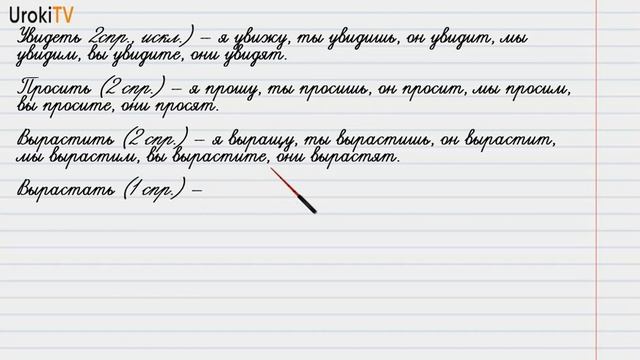 UrokiTV
Увидеть 2спр., искл.) – я увижу, ты увидишь, он увидит, мы
увидим, вы увидите, они увидят.
Просить (2 спр.) – я прошу, ты просишь, он просит, мы просим,
вы просите, они просят.
Вырастить (2 спр.) – я выращу, ты вырастишь, он вырастит,
мы вырастим, вы вырастите, они вырастят.
Вырастать (1 спр.) –